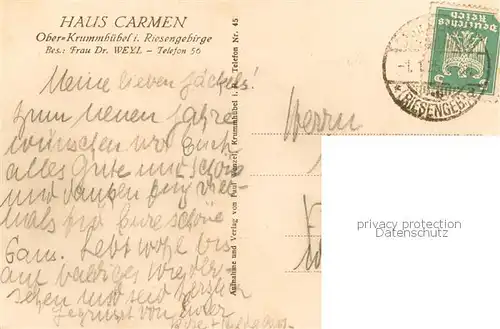 HAUS CARMEN
Ober-Krummhübel i. Riesengebirge
Bes.: Frau Dr. WEYL – Telefon 56
Meine lieben Jäckels!
Zum neuen Jahre
wünschen wir Euch
alles Gute und Schöne
und danken Euch viel-
mals für Eure schöne
Gans. Lebt wohl bis
auf baldiges Wieder-
sehen und seid herzlich
gegrüsst von Eurer
Aufnahme und Verlag von Paul Krummhübel i. R. Telefon Nr. 45
Herrn
Deutsches
Reich
(RIESENGEB.)
privacy protection
Datenschutz